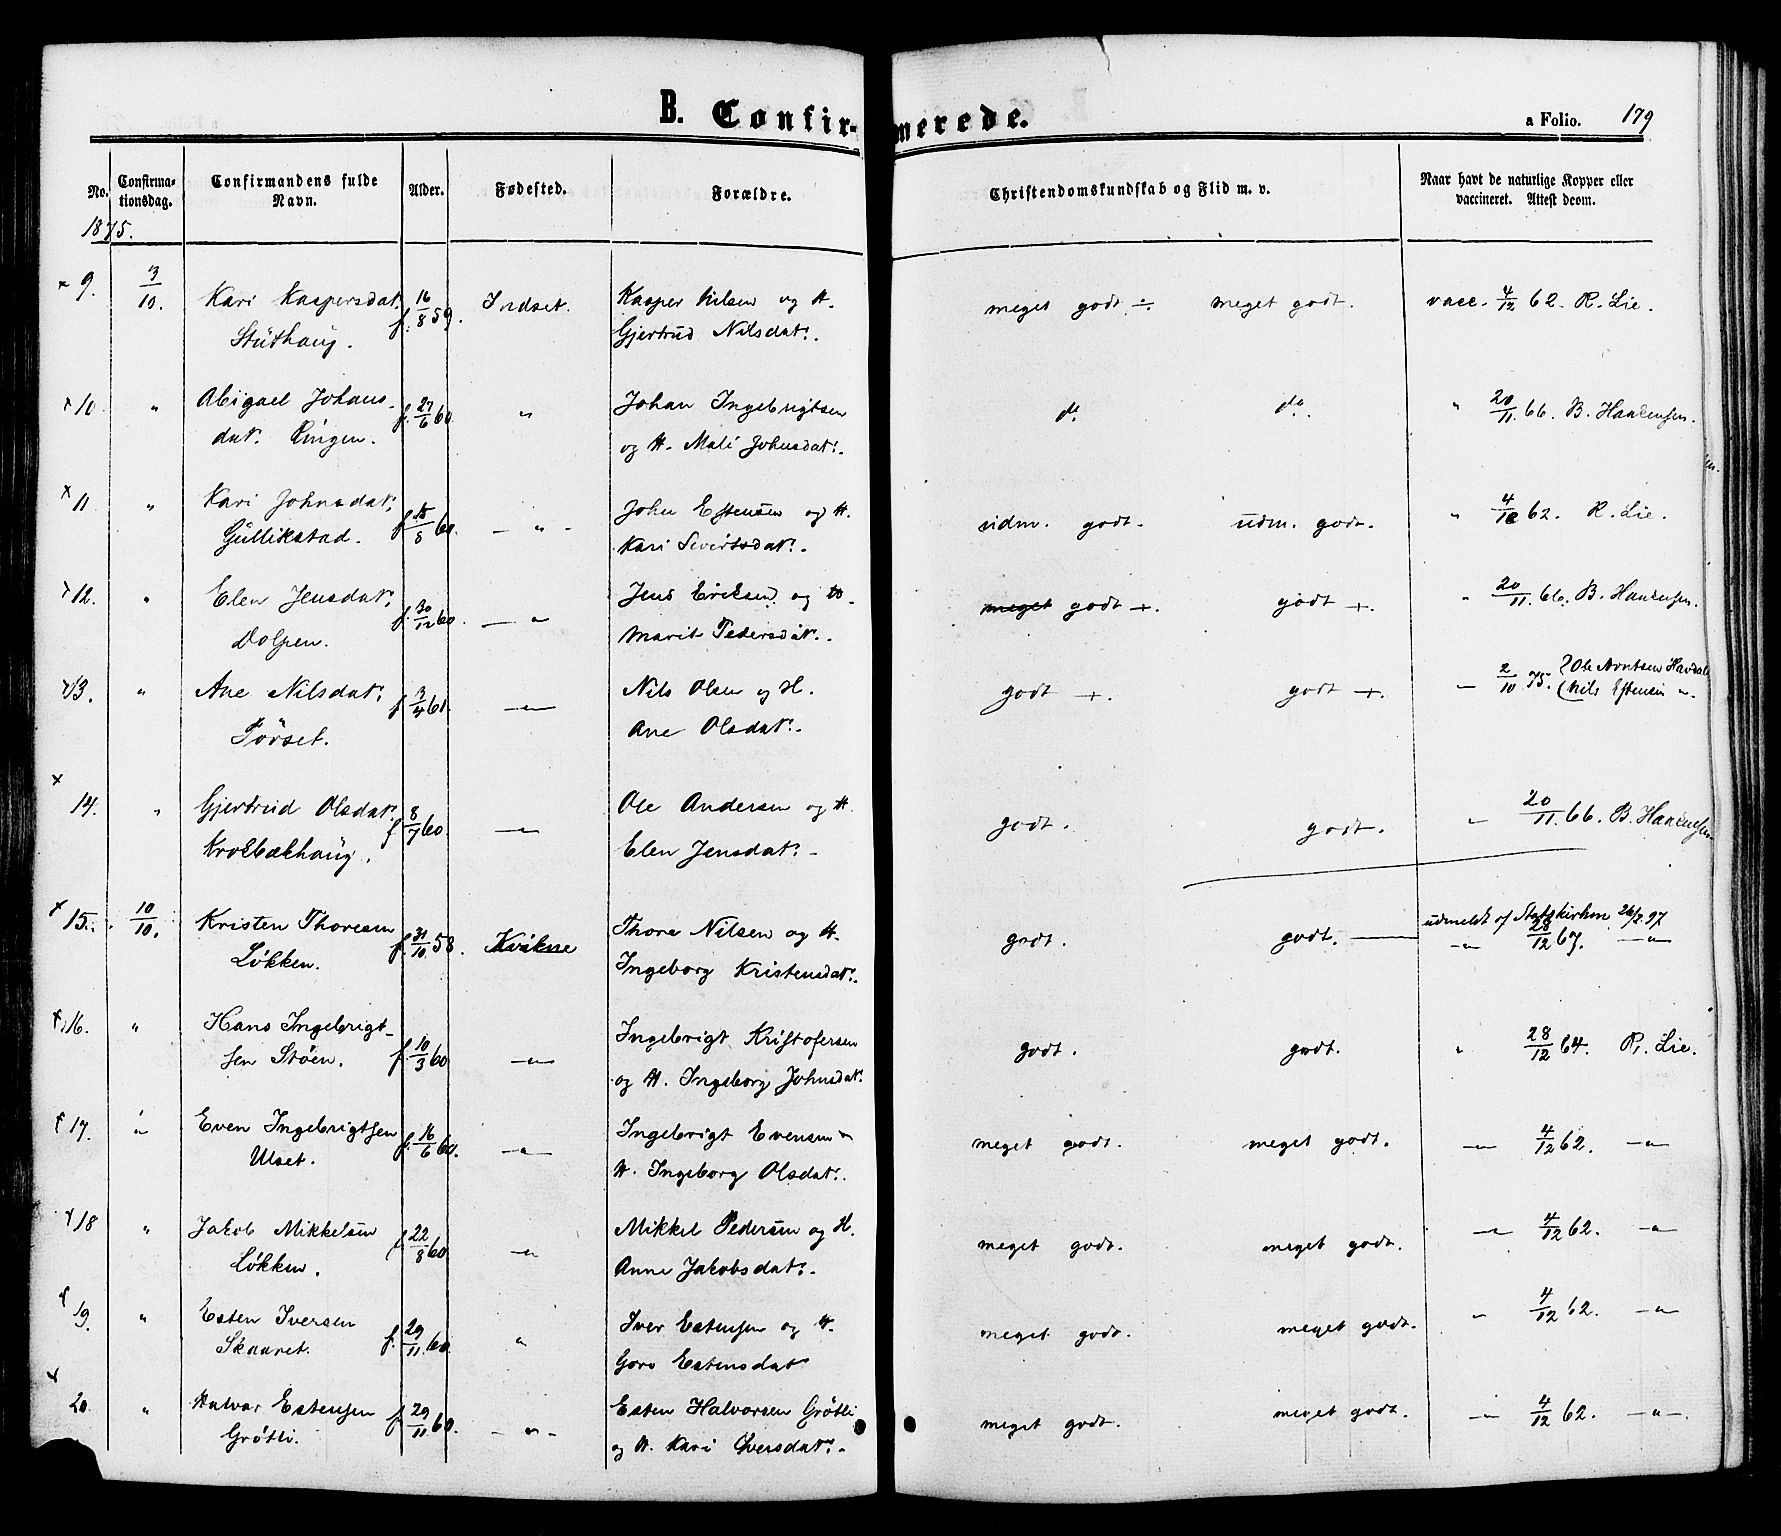 B. Confir- merede.
a Folio. 179
No. Confirma-tionsdag. Confirmandens fulde Navn. Alder. Fødested. Forældre. Christendomskundskab og Flid m. v. Naar havt de naturlige Kopper eller vaccineret. Attest derom.
1875.
× 9. 3/10. Kari Kaspersdat. f. 16/8 59. Indset. Kasper Nilsen og H. meget godt ÷ meget godt. vacc. 4/12 62. R. Lie.
Stuthaug. Gjertrud Nilsdat.
× 10. " Abigael Johans- f. 27/6 60. " Johan Ingebrigtsen do do. " 20/11. 66. B. Haarensen.
dat. Ringen. og H. Mali Johnsdat.
× 11 " Kari Johnsdat. f. 15/5 60. — " - John Estensen og H. udm. godt. udm. godt. " 4/12 62. R. Lie.
Gullikstad. Kari Sivertsdat.
× 12. " Elen Jensdat. f. 30/12 60. — " Jens Eriksen og H. meget godt +. godt +. " 20/11. 66. B. Haarensen.
Dolpen. Marit Pedersdat.
× 13. " Ane Nilsdat. f. 3/4 61. — " — Nils Olsen og H. godt +. godt +. — 2/10 75. Ole Arntsen Havdal
Törset. Ane Olsdat. Nils Estensen ".
× 14. " Gjertrud Olsdat. f. 8/7 60. — " — Ole Andersen og H. godt. godt. " 20/11. 66. B. Haarensen
Krokbækhaug. Elen Jensdat.
× 15. 10/10. Kristen Thoresen f. 31/10 58. Kvikne Thore Nilsen og H. godt. godt. — udmeldt af Statskirken 26/2 97
— " — 28/12 67. — " —
Løkken. Ingeborg Kristensdat.
× 16. " Hans Ingebrigt- f. 10/3 60 — " — Ingebrigt Kristofersen godt. godt. " 28/12 64. R. Lie.
sen Stöen. og H. Ingeborg Johnsdat.
× 17. " Even Ingebrigtsen f. 16/6 60. — " — Ingebrigt Evensen meget godt. meget godt. — " — 4/12 62. — " —
Ulset. H. Ingeborg Olsdat.
× 18 " Jakob Mikkelsen f. 22/8 60 — " Mikkel Pedersen og H. meget godt. meget godt. — " 4/12 62. — "
Løkken. Anne Jakobsdat.
× 19. " Esten Iversen f. 29/11. 60. " Iver Estensen og H. meget godt. meget godt. — " 4/12 62. — " —
Skaaret. Goro Estensdat
× 20. " Halvar Estensen f. 29/11 60. — " - Esten Halvorsen Gröttli meget godt. meget godt. — " 4/12 62. — " —.
Gröttli. og H. Kari Iversdat.